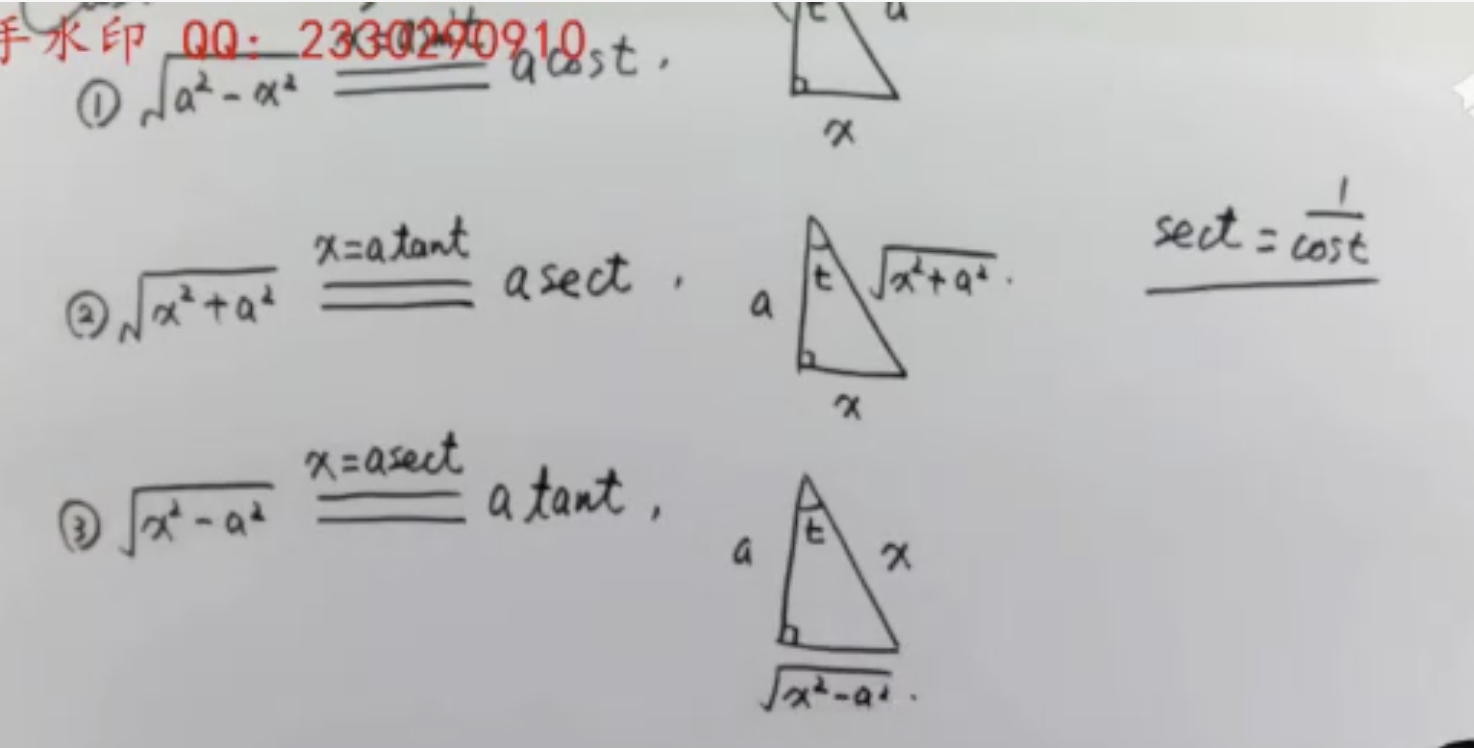 手水印 QQ: 2330290910
① √(a² - x²) ═ a cost .
t a
x
② √(x² + a²) x = a tant ═ a sect .
a t √(x² + a²) .
x
sect = 1/cost
③ √(x² - a²) x = a sect ═ a tant ,
a t x
√(x² - a²) .